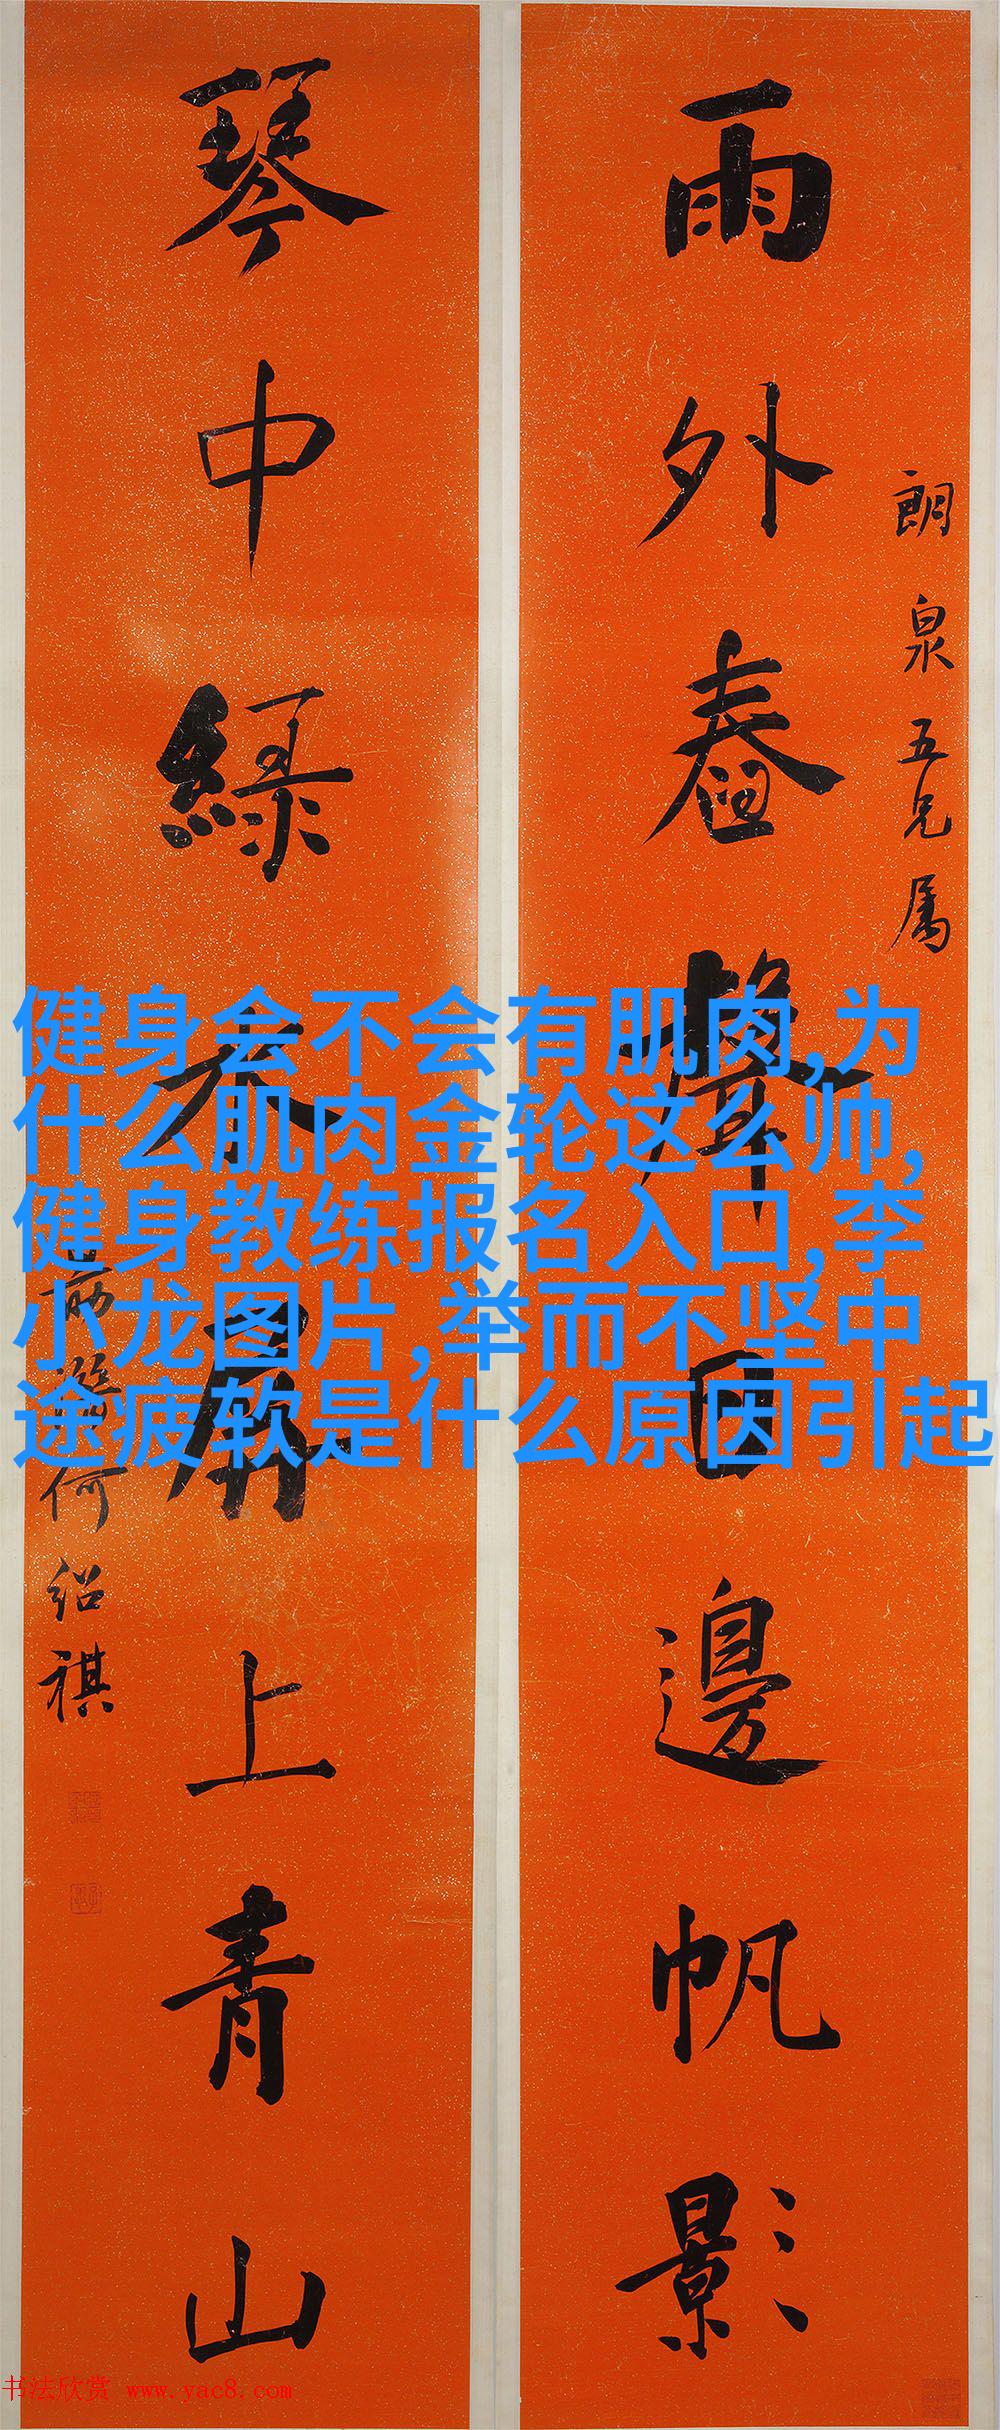 朗泉五兄属
雨外舂聲日邊帆影
琴中綠水屏上青山
何紹祺
健身会不会有肌肉,为
什么肌肉金轮这么帅,
健身教练报名入口,李
小龙图片,举而不坚中
途疲软是什么原因引起
书法欣赏 www.yac8.com